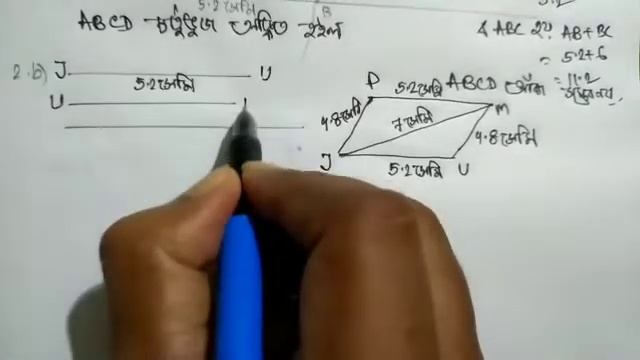 5.2 সেমি B 5.2
ABCD চতুৰ্ভুজ অংকিত হইল
Δ ABC ত AB+BC
= 5.2+6
= 11.2
2.b) J U
5.2 সেমি
U
P 5.2 সেমি ABCD
M
4.8 সেমি 7 সেমি 4.8 সেমি
J 5.2 সেমি U